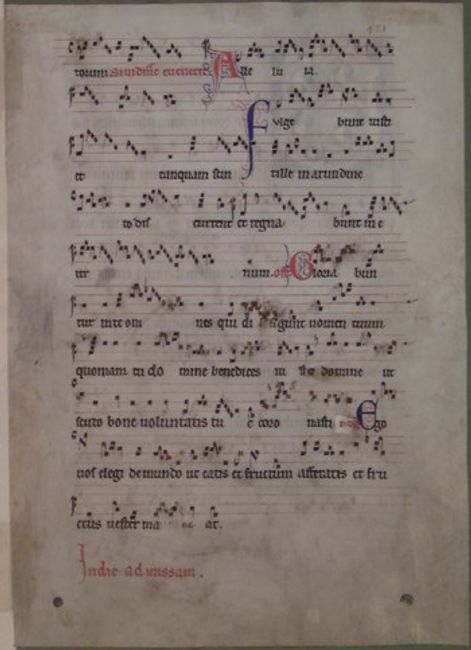 torum Alle lu ia
Fulge bunt iusti
et tanquam scin tille in arundine
to dis current et regna bunt in e
ter num. Gloria bun
tur in te om nes qui di ligunt nomen tuum
quoniam tu do mine benedices iu sto domine ut
scuto bone voluntatis tu coro nasti Ego
vos elegi de mundo ut eatis et fructum afferatis et fru
ctus vester ma ne at.
In die ad missam.